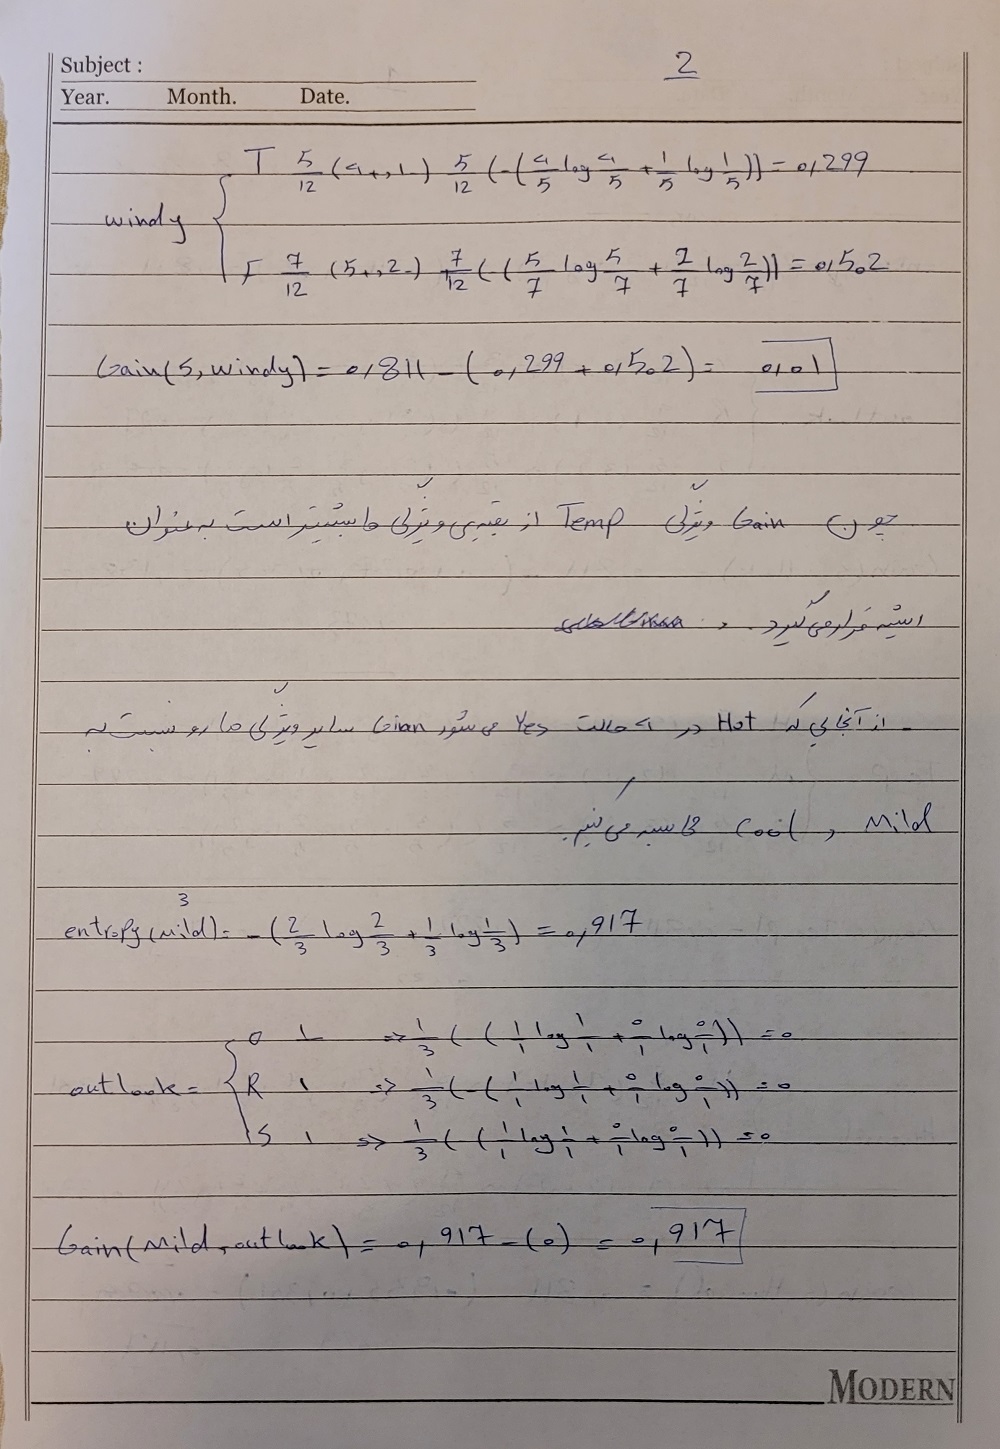 Subject :
2
Year. Month. Date.
windy
T 5/12 (4+, 1-) 5/12 (-(4/5 log 4/5 + 1/5 log 1/5)) = 0,299
F 7/12 (5+, 2-) + 7/12 (-(5/7 log 5/7 + 2/7 log 2/7)) = 0,502
Gain(S, windy) = 0,811 - (0,299 + 0,502) = 0,01
چون Gain ویژگی Temp از بقیه‌ی ویژگی ها بیشتر است به عنوان
ریشه قرار می گیرد.
- از آنجایی که Hot در 4 حالت Yes می شود Gian سایر ویژگی ها رو نسبت به
Mild و Cool محاسبه می کنیم.
3
entropy(mild) = -(2/3 log 2/3 + 1/3 log 1/3) = 0,917
O 1 => 1/3 (-(1/1 log 1/1 + 0/1 log 0/1)) = 0
outlook = R 1 => 1/3 (-(1/1 log 1/1 + 0/1 log 0/1)) = 0
S 1 => 1/3 (-(1/1 log 1/1 + 0/1 log 0/1)) = 0
Gain(Mild, outlook) = 0,917 - (0) = 0,917
MODERN